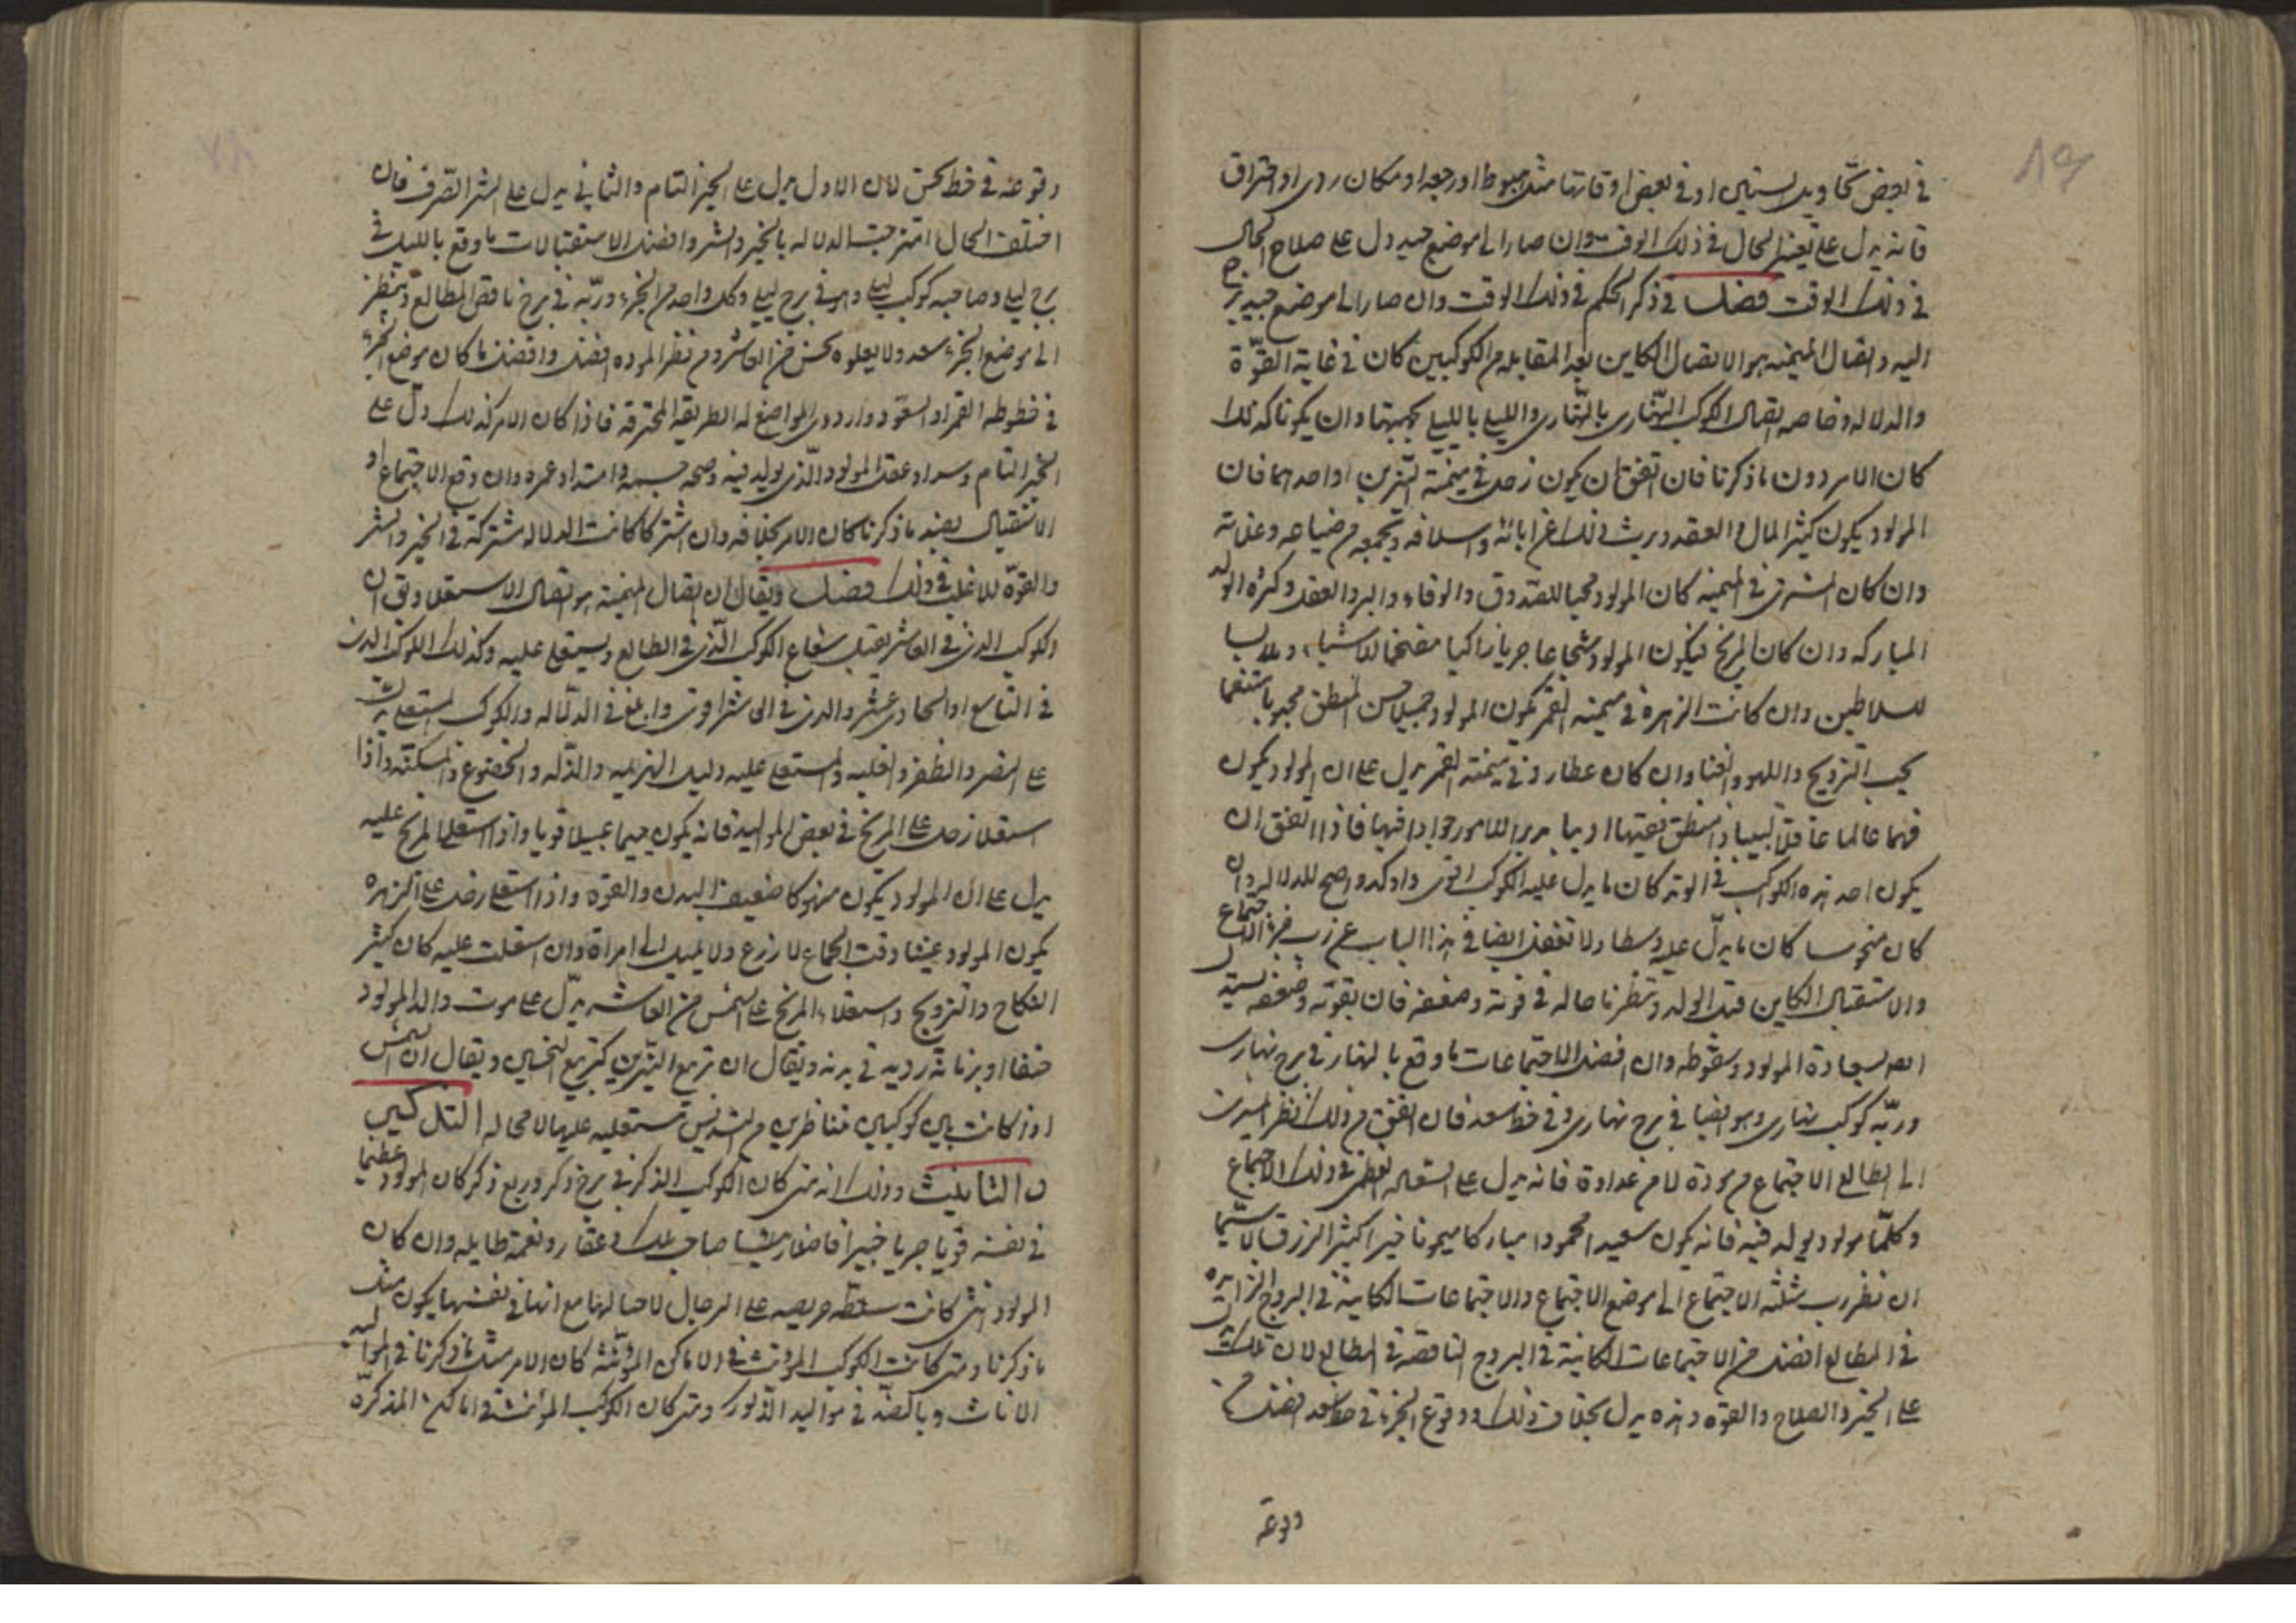 في بعض تحاويل السنين او في بعض اوقاتها مثل هبوط او رجعه او مكان ردى او احتراق
فانه يدل على تغير الحال في ذلك الوقت وان صار الى موضع جيد دل على صلاح الحال
في ذلك الوقت فصل في ذكر الحكم في ذلك الوقت وان صار الى موضع جيد
اليه واتصال الميمنه هو الاتصال الكاين بعد المقابله من الكوكبين كان في غاية القوّة
والدلاله وخاصه اتصال الكوكب النهّارى بالنهّارى والليلي بالليلي وان يكونا كذلك
كان الامر دون ما ذكرنا فان اتفق ان يكون زحل في ميمنة النيّرين او احدهما فان
المولود يكون كثير المال والعقد ويرث ذلك عن ابائه واسلافه وتجمعه من ضياعه وغلاته
وان كان المشترى في الميمنه كان المولود محبا للصدوق والوفاء والبر والعقل وكثره الولد
المباركه وان كان المريخ فيكون المولود شجاعا جريا زاكيا للاشياء وملابسا
للسلاطين وان كانت الزهرة في ميمنه القمر يكون المولود جميلا حسن المنطق محبوبا
يحب التزويج واللهو والغنا وان كان عطارد في ميمنة القمر يدل على ان المولود يكون
فهما عالما عاقلا لبيبا ذا منطق اديبا مدبر الامور جوادا فيها فاذا اتفق ان
يكون احد هذه الكواكب في الوتد كان ما يدل عليه الكوكب اقوى واوكد واصح للدلاله وان
كان منحوسا كان ما يدلّ عليه وسطا ولا تغفل ايضا في هذا الباب عن رب جزء الاجتماع
والاستقبال الكاين قبل الولد وتنظر ما حاله في قوته وضعفه فان بقوّته وضعفه يستدل
لسعادة المولود وسقوطه وان افضل الاجتماعات ما وقع بالنهار في برج نهارى
وربّه كوكب نهارى وهو ايضا في برج نهارى وفي خط سعد فان اتفق مع ذلك نظر النيرين
الى الطالع الاجتماع من مودة لا من عداوة فانه يدل على السعاده العظمى في ذلك الاجتماع
وكلّ مولود يولد فيه فانه يكون سعيدا محمودا مباركا ميمونا خيرا كثير الرزق لا سيّما
ان نظر رب مثلثه الاجتماع الى موضع الاجتماع والاجتماعات الكاينة في البروج الزايده
في المطالع افضل من الاجتماعات الكاينة في البروج الناقصه في المطالع لان تلك تدل
على الخير والصلاح والقوه وهذه يدل بخلاف ذلك ووقوع الجزء في خط سعد افضل من
وقوعه
وقوعه في خط نحس لان الاول يدل على الخير التام والثاني يدل على الشر الصّرف فان
اختلفت الحال امتزجت الدلاله بالخير والشر وافضل الاستقبالات ما وقع بالليل في
برج ليلي وصاحبه كوكب ليلي وهو في برج ليلي وكل واحد من الجزء وربّه في برج ناقص المطالع وينظر
الى موضع الجزء سعد ولا يعلوه نحس من العاشر ومن نظر الموده افضل وافضل ما كان موضع الجزء
في خطوطه القمر او السعود واردى المواضع له الطريقه المحترقه فاذا كان الامر كذلك دلّ على
الخير التام وسداد عقل المولود الّذى يولد فيه وصحه جسمه وامتداد عمره وان وقع الاجتماع او
الاستقبال بضد ما ذكرنا كان الامر بخلافه وان اشتركا كانت الدلاله مشتركة في الخير والشر
والقوّه للاغلب في ذلك فصل ويقال ان اتصال الميمنة هو اتصال الاستعلا وذلك ان
الكوكب الذى في العاشر يقبل شعاع الكوكب الّذى في الطالع ويستعلى عليه وكذلك الكوكب الذى
في التاسع او الحادى عشر والذى في العاشر اقوى وابلغ في الدلاله والكوكب المستعلى يدلّ
على النصر والظفر والغلبه والمستعلى عليه دليل الهزيمه والذّله والخضوع والمسكنة واذا
استعلا زحل على المريخ في بعض المواليد فانه يكون عبيلا قويا واذا استعلى المريخ عليه
يدل على ان المولود يكون منهوكا ضعيف البدن والقوّه واذا استعلى زحل على الزهره
يكون المولود وقت الجماع لا زرع ولا يميل الى امراة وان استعلت عليه كان كثير
النكاح والتزويج واستعلاء المريخ على الشمس من العاشر يدلّ على موت والد المولود
او زمانة رديه في بدنه ويقال ان تربيع النيّرين كتربيع النحسين ويقال ان الشمس
اذا كانت بين كوكبين متناظرين من التسديس مستعليه عليهما لا محاله التذكير
و التانيث وذلك انه متى كان الكوكب الذكر في برج ذكر وربع ذكر كان المولود عظيما
في نفسه قويا جريا خبيرا صاحب ملك وعقار ونعمة طايله وان كان
المولود انثى كانت سلطه حريصه على الرجال لا حيا لها مع انها في نفسها يكون مثل
ما ذكرنا ومتى كانت الكواكب المؤنث في الاماكن المؤنّثه كان الامر مثل ما ذكرنا في المواليد
الاناث وبالضدّ في مواليد الذكور ومتى كان الكوكب المؤنث في اماكن المذكرّه